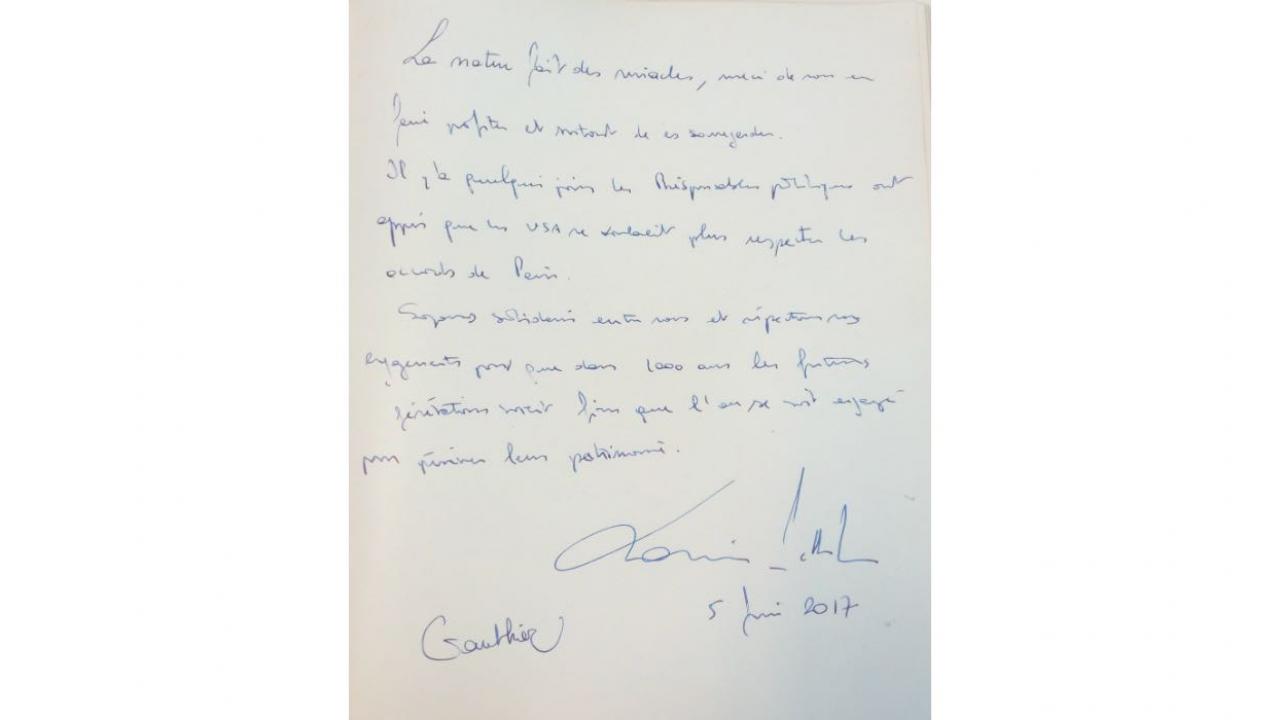 La nature fait des miracles, merci de nous en
faire profiter et surtout de les sauvegarder.
Il y'a quelques jours les Responsables politiques ont
appris que les USA ne voulaient plus respecter les
accords de Paris.
Soyons solidaires entre nous et respectons nos
engagements pour que dans 1000 ans les futures
générations soient fiers que l'on se soit engagé
pour préserver leurs patrimoine.
5 Juin 2017
Gauthier